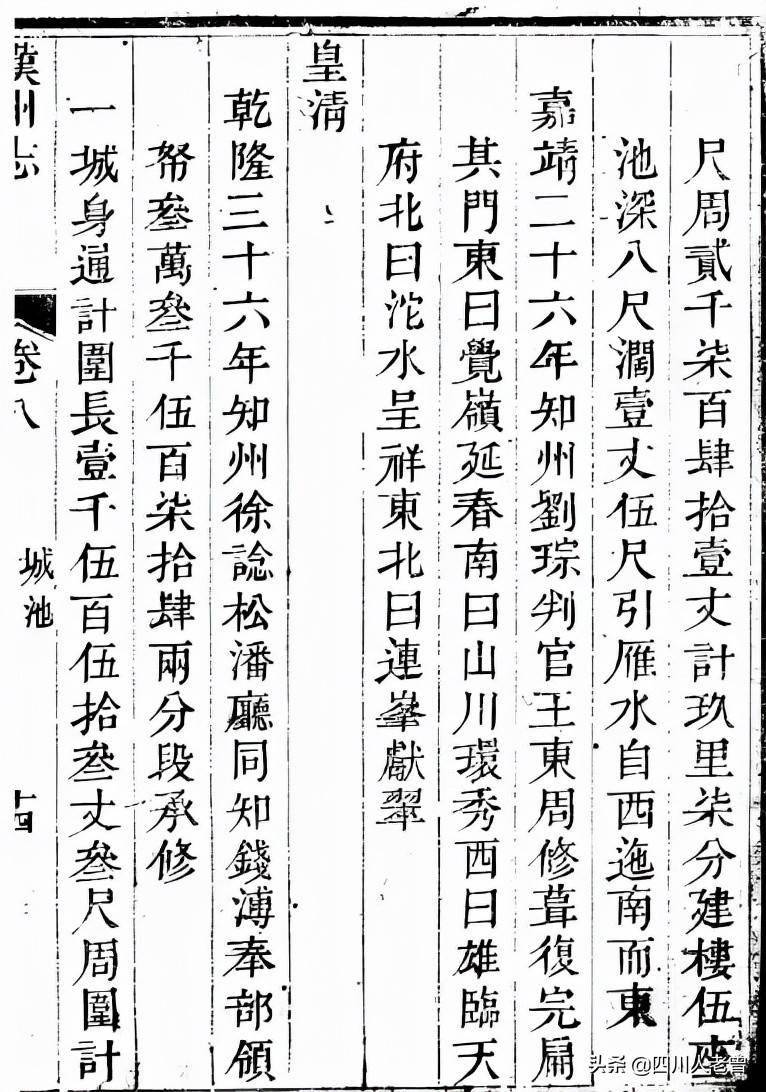 尺周貳千柒百肆拾壹丈計玖里柒分建樓伍座
池深八尺濶壹丈伍尺引雁水自西迤南而東
嘉靖二十六年知州劉琮判官王東周修葺復完扁
其門東曰覺嶺延春南曰山川環秀西曰雄臨天
府北曰沱水呈祥東北曰連峯獻翠
皇清
乾隆三十六年知州徐諗松潘廳同知錢溥奉部領
帑叁萬叁千伍百柒拾肆兩分段承修
一城身通計圍長壹千伍百伍拾叁丈叁尺周圍計
漢州志
卷八
城池
十四
头条 @四川人老曾